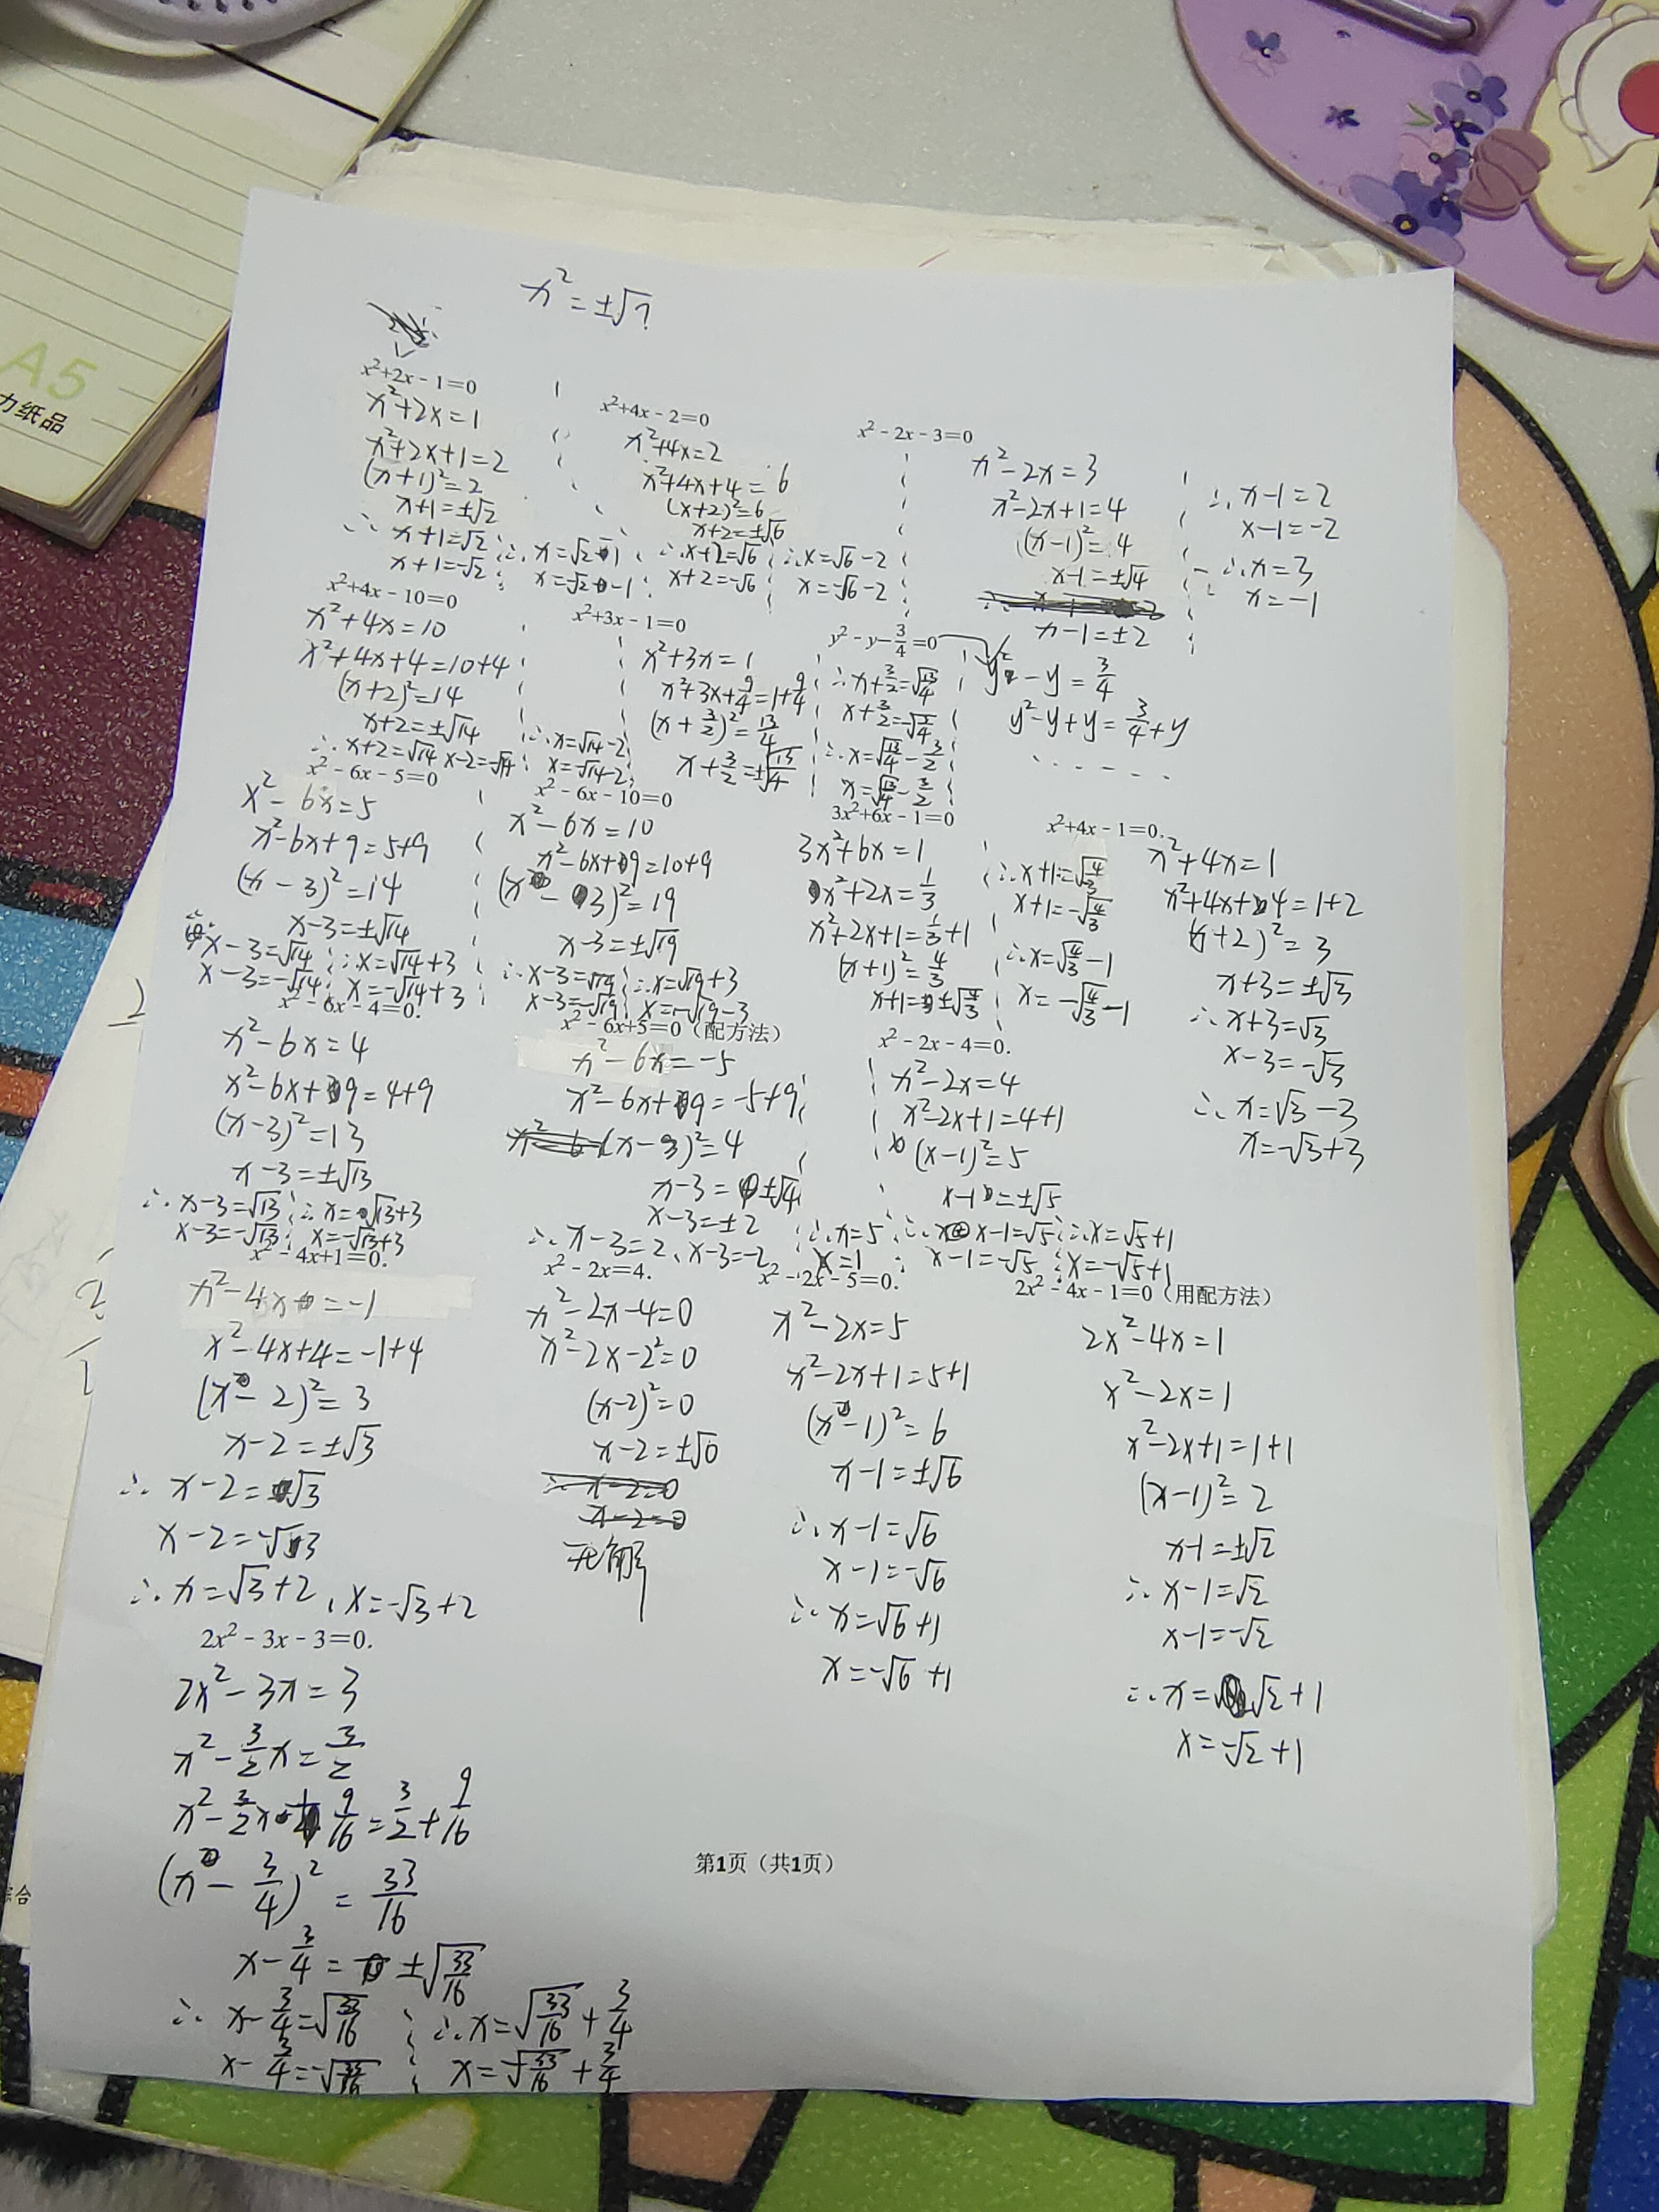 A5
力纸品
x²=±√7
x²+2x-1=0
x²+2x=1
x²+2x+1=2
(x+1)²=2
x+1=±√2
∴ x+1=√2
x+1=-√2
∴ x=√2-1
x=-√2-1
x²+4x-2=0
x²+4x=2
x²+4x+4=6
(x+2)²=6
x+2=±√6
∴x+2=√6
x+2=-√6
∴x=√6-2
x=-√6-2
x²-2x-3=0
x²-2x=3
x²-2x+1=4
(x-1)²=4
x-1=±√4
x-1=±2
∴ x-1=2
x-1=-2
∴x=3
x=-1
x²+4x-10=0
x²+4x=10
x²+4x+4=10+4
(x+2)²=14
x+2=±√14
∴ x+2=√14 x-2=-√14
∴x=√14-2
x=-√14-2
x²+3x-1=0
x²+3x=1
x²+3x+9/4=1+9/4
(x+3/2)²=13/4
x+3/2=±√13/4
∴x+3/2=√13/4
x+3/2=-√13/4
∴x=√13/4-3/2
x=-√13/4-3/2
y²-y-3/4=0
y²-y=3/4
y²-y+y=3/4+y
......
x²-6x-5=0
x²-6x=5
x²-6x+9=5+9
(x-3)²=14
x-3=±√14
x-3=√14
x-3=-√14
∴x=√14+3
x=-√14+3
x²-6x-10=0
x²-6x=10
x²-6x+9=10+9
(x-3)²=19
x-3=±√19
∴x-3=√19
x-3=-√19
∴x=√19+3
x=-√19-3
3x²+6x-1=0
3x²+6x=1
x²+2x=1/3
x²+2x+1=1/3+1
(x+1)²=4/3
x+1=±√4/3
∴x+1=√4/3
x+1=-√4/3
∴x=√4/3-1
x=-√4/3-1
x²+4x-1=0.
x²+4x=1
x²+4x+4=1+2
(x+2)²=3
x+3=±√3
∴x+3=√3
x-3=-√3
∴ x=√3-3
x=-√3+3
x²-6x-4=0.
x²-6x=4
x²-6x+9=4+9
(x-3)²=13
x-3=±√13
∴ x-3=√13
x-3=-√13
∴ x=√13+3
x=-√13+3
x²-6x+5=0（配方法）
x²-6x=-5
x²-6x+9=-5+9
(x-3)²=4
x-3=±√4
x-3=±2
∴ x-3=2、x-3=-2
∴x=5
x=1
x²-2x-4=0.
x²-2x=4
x²-2x+1=4+1
(x-1)²=5
x-1=±√5
∴ x-1=√5
x-1=-√5
∴x=√5+1
x=-√5+1
x²-4x+1=0.
x²-4x=-1
x²-4x+4=-1+4
(x-2)²=3
x-2=±√3
∴ x-2=√3
x-2=-√3
∴ x=√3+2、x=-√3+2
x²-2x=4.
x²-2x-4=0
x²-2x-2²=0
(x-2)²=0
x-2=±√0
∴ x-2=0
x-2=0
无解
x²-2x-5=0.
x²-2x=5
x²-2x+1=5+1
(x-1)²=6
x-1=±√6
∴ x-1=√6
x-1=-√6
∴ x=√6+1
x=-√6+1
2x²-4x-1=0（用配方法）
2x²-4x=1
x²-2x=1
x²-2x+1=1+1
(x-1)²=2
x-1=±√2
∴ x-1=√2
x-1=-√2
∴x=√2+1
x=-√2+1
2x²-3x-3=0.
2x²-3x=3
x²-3/2x=3/2
x²-3/2x+9/16=3/2+9/16
(x-3/4)²=33/16
x-3/4=±√33/16
∴ x-3/4=√33/16
x-3/4=-√33/16
∴x=√33/16+3/4
x=-√33/16+3/4
第1页（共1页）
综合